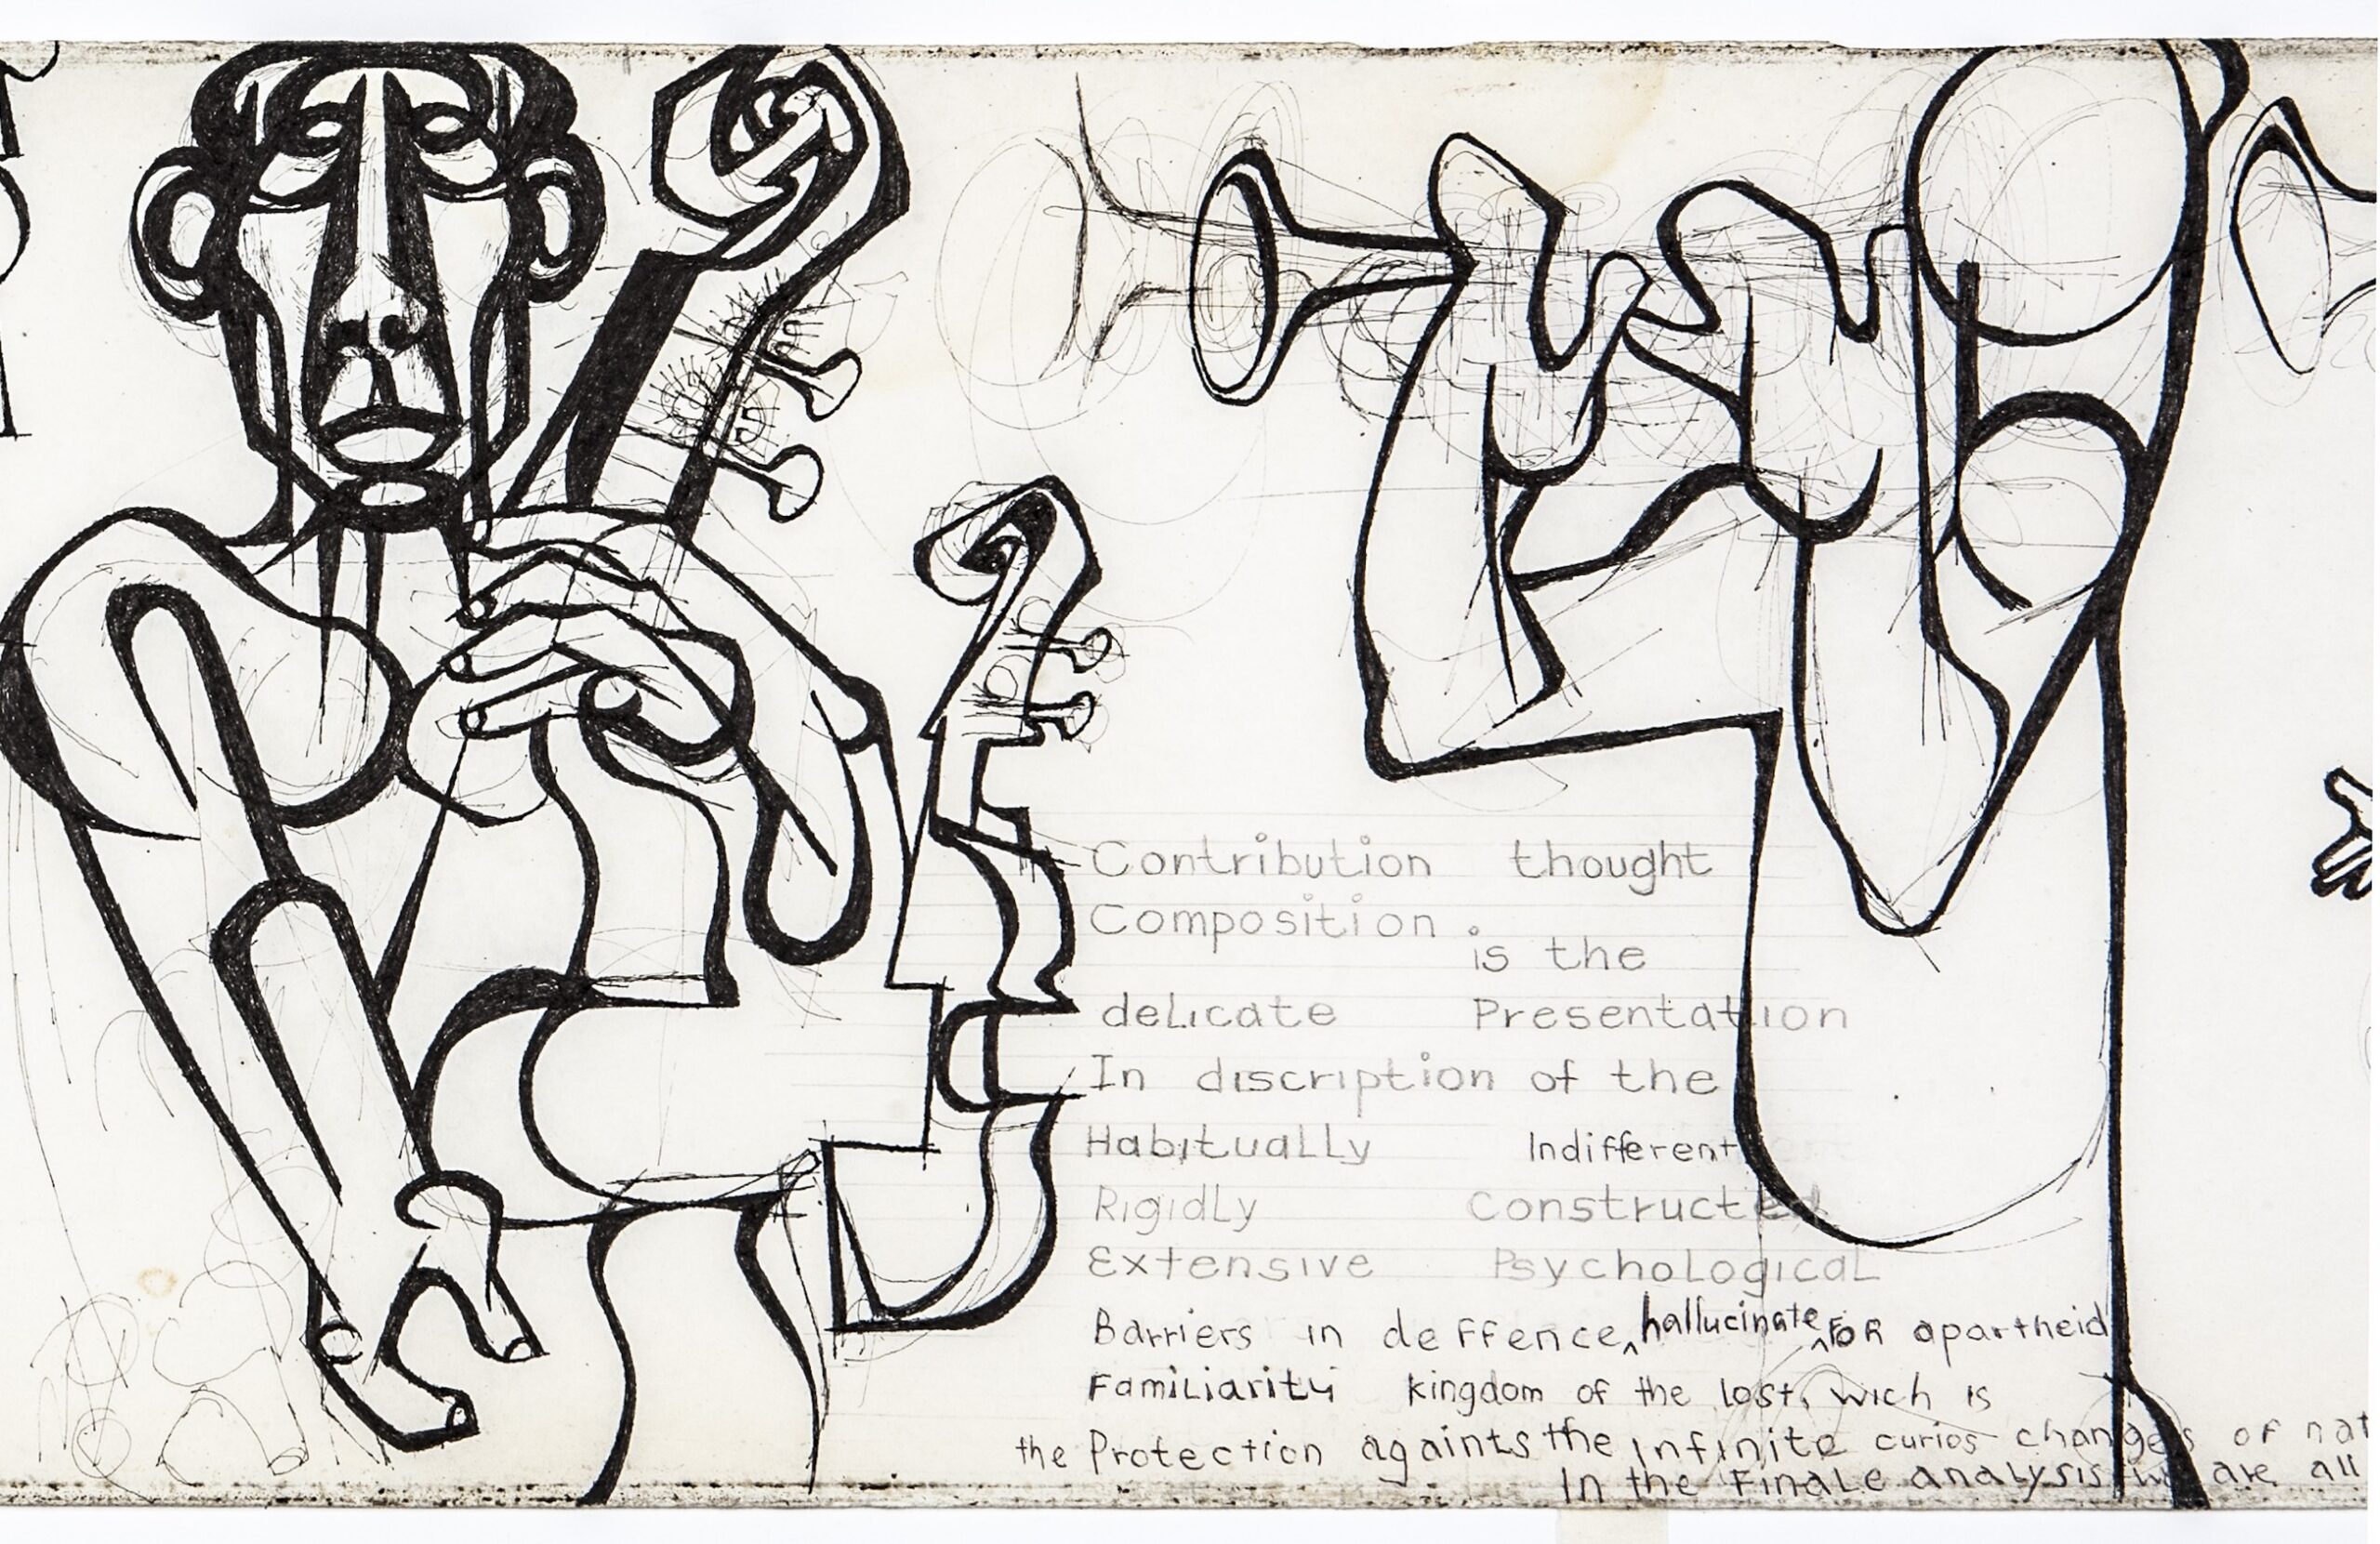 Contribution thought
Composition is the
delicate Presentation
In discription of the
Habitually Indifferent
Rigidly Constructed
Extensive Psychological
Barriers in deffence hallucinate FOR apartheid
Familiarity kingdom of the lost, wich is
the Protection againts the infinite curios changes of nat
In the Finale analysis we are all